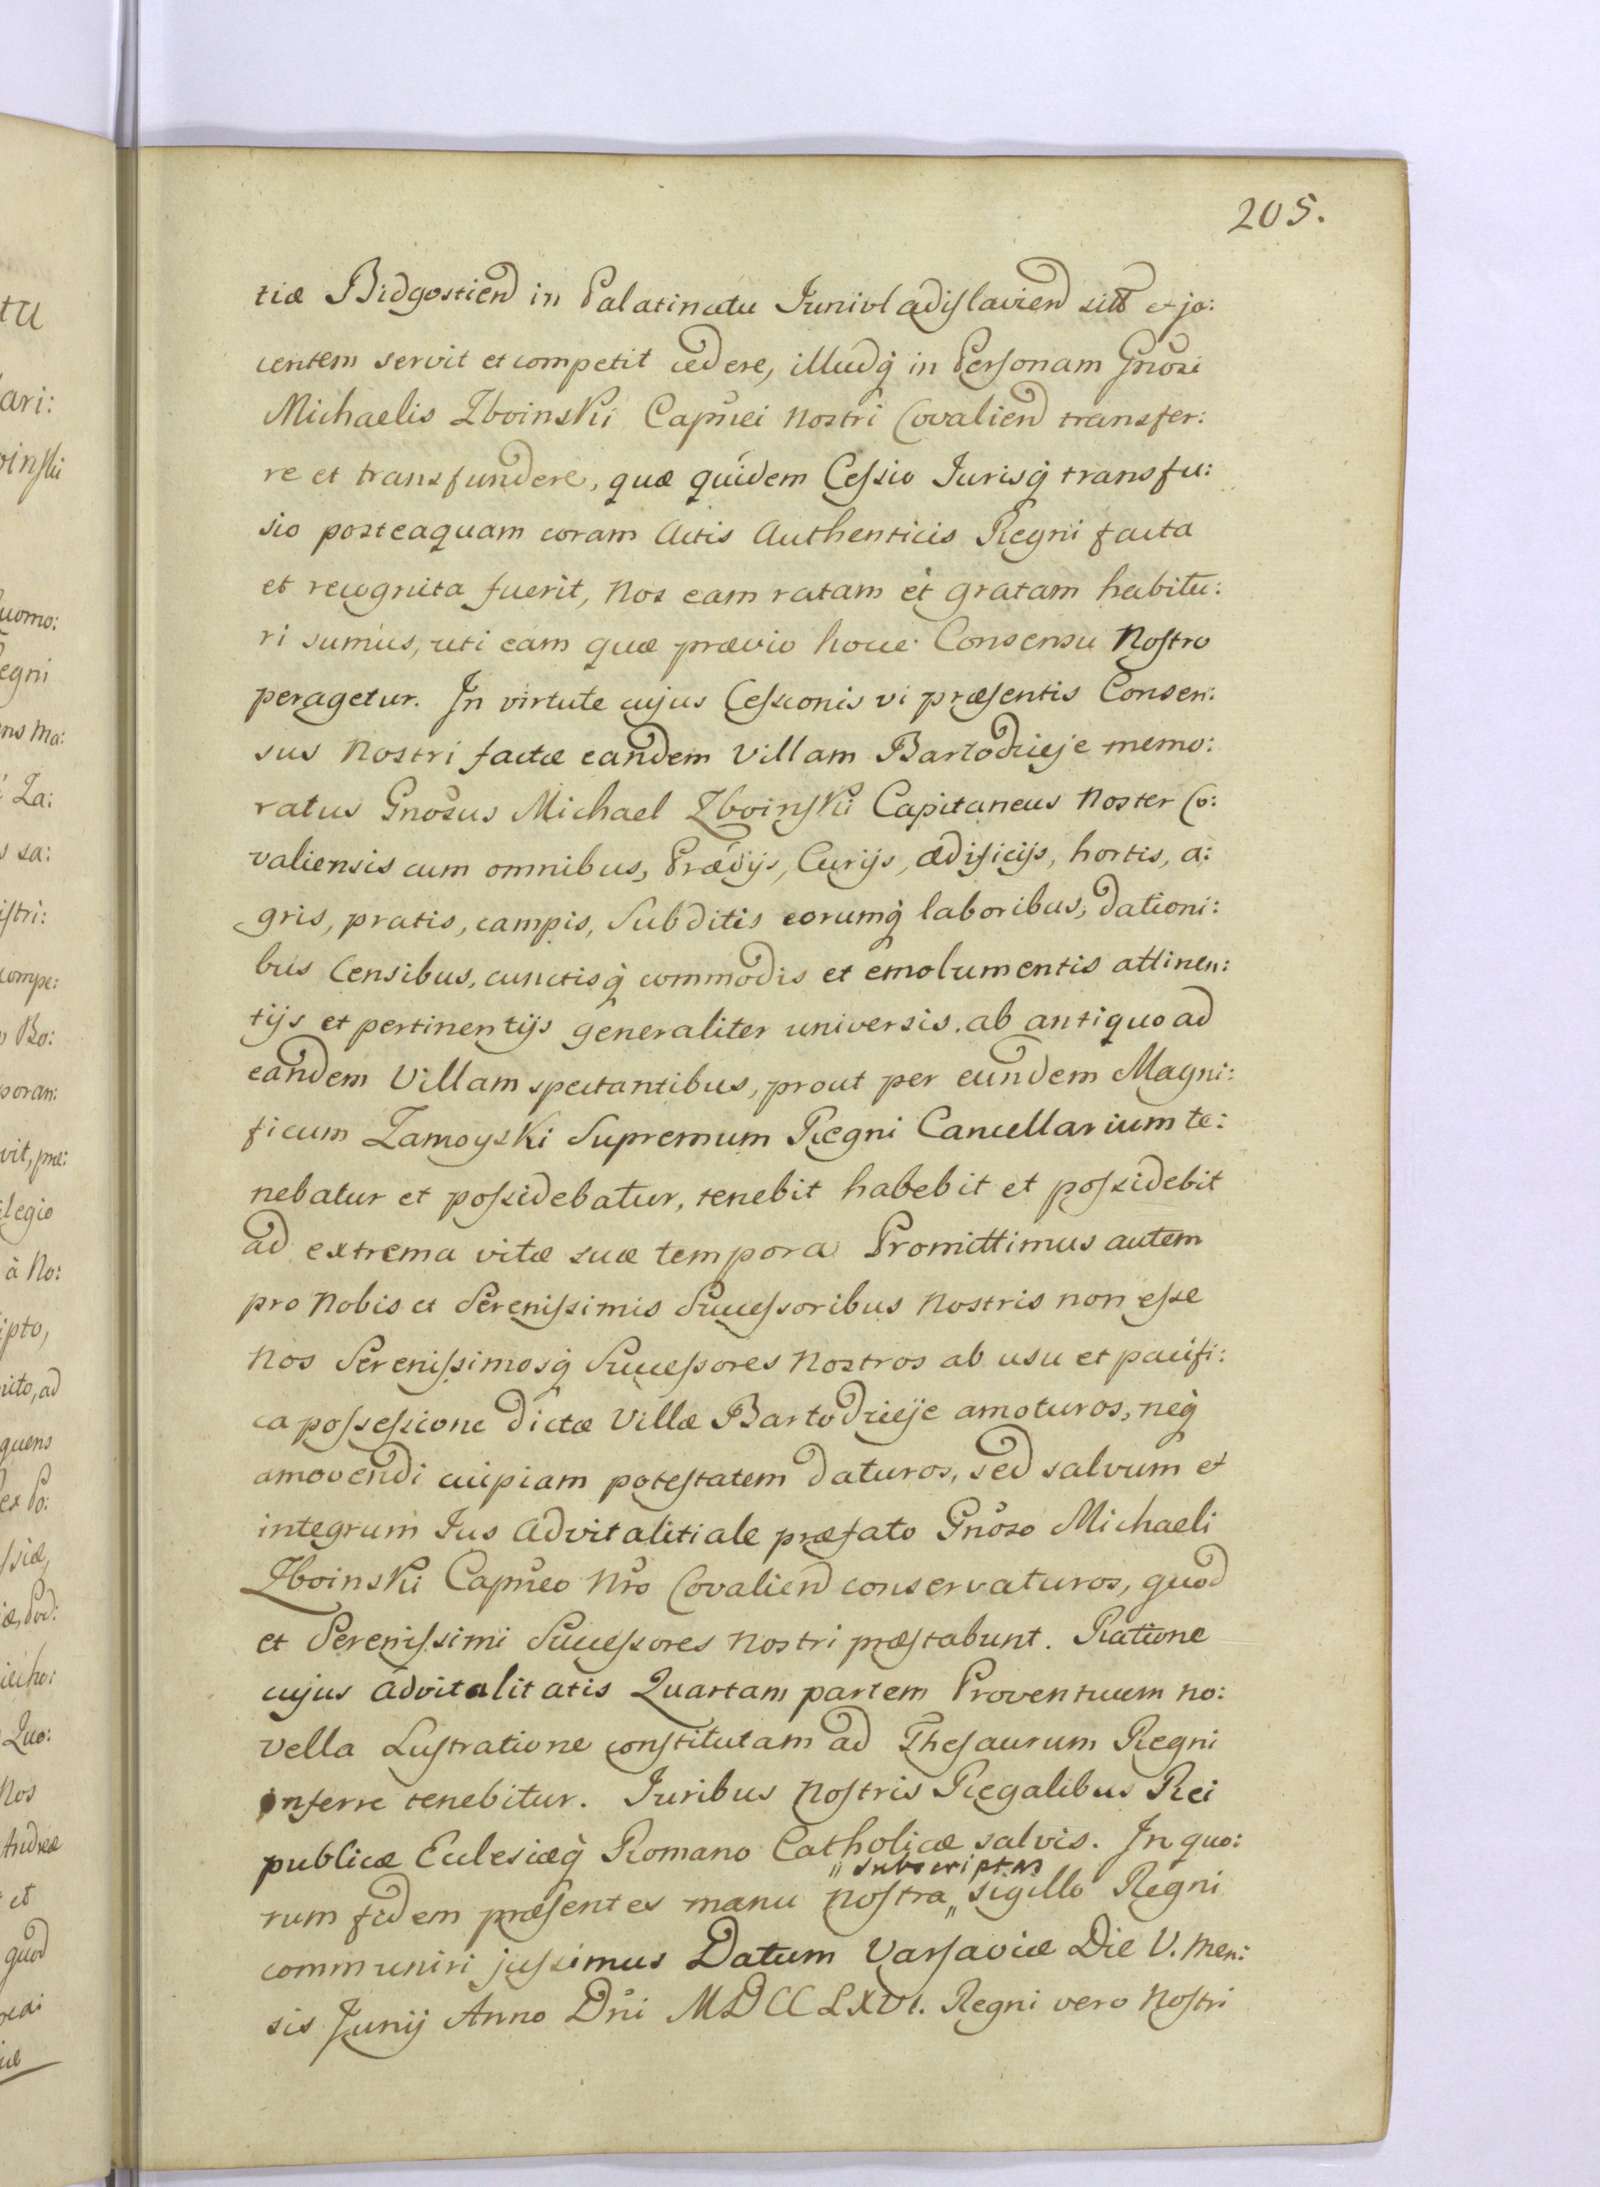 205.
tiæ Bidgostien in Palatinatu Junivladislavien sitt et ja:
centem servit et competit cedere, illudq́ in Personam Gnosi
Michaelis Zboinski Capnei Nostri Covalien transfer:
re et transfundere, quæ quidem Cessio Jurisq́ transfu:
sio posteaquam coram Actis Authenticis Regni facta
et recognita fuerit, Nos eam ratam et gratam habitu:
ri sumus, uti eam quæ prævio hocce Consensu Nostro
peragetur. In virtute cujus Cessionis vi præsentis Consen:
sus Nostri factæ eandem Villam Bartodzieje memo:
ratus Gnosus Michael Zboinski Capitaneus Noster Co:
valiensis cum omnibus, Prædijs, Curijs, ædificijs, hortis, a:
gris, pratis, campis, Subditis eorumq́ laboribus, dationi:
bus Censibus, cunctisq́ commodis et emolumentis attinen:
tijs et pertinentijs generaliter universis. ab antiquo ad
eandem Villam spectantibus, prout per eundem Magni:
ficum Zamoyski Supremum Regni Cancellarium te:
nebatur et possidebatur, tenebit habebit et possidebit
ad extrema vitæ suæ tempora Promittimus autem
pro Nobis et Serenissimis Successoribus Nostris non esse
Nos Serenissimosq́ Successores Nostros ab usu et pacifi:
ca possessione dictæ Villæ Bartodzieje amoturos, neq́
amovendi cuipiam potestatem daturos, sed salvum et
integrum Jus advitalitiale præfato Gnoso Michaeli
Zboinski Capneo Nro Covalien conservaturos, quod
et Serenissimi Successores Nostri præstabunt. Ratione
cujus advitalitatis Quartam partem Proventuum no:
vella Lustratione constitutam ad Thesaurum Regni
inferre tenebitur. Juribus Nostris Regalibus Rei
publicæ Eclesiæq́ Romano Catholicæ salvis. In quo:
" subscriptas
rum fidem præsentes manu Nostra " sigillo Regni
communiri jussimus Datum Varsaviæ Die V. Men:
sis Junij Anno Dni MDCCLXVI. Regni vero Nostri